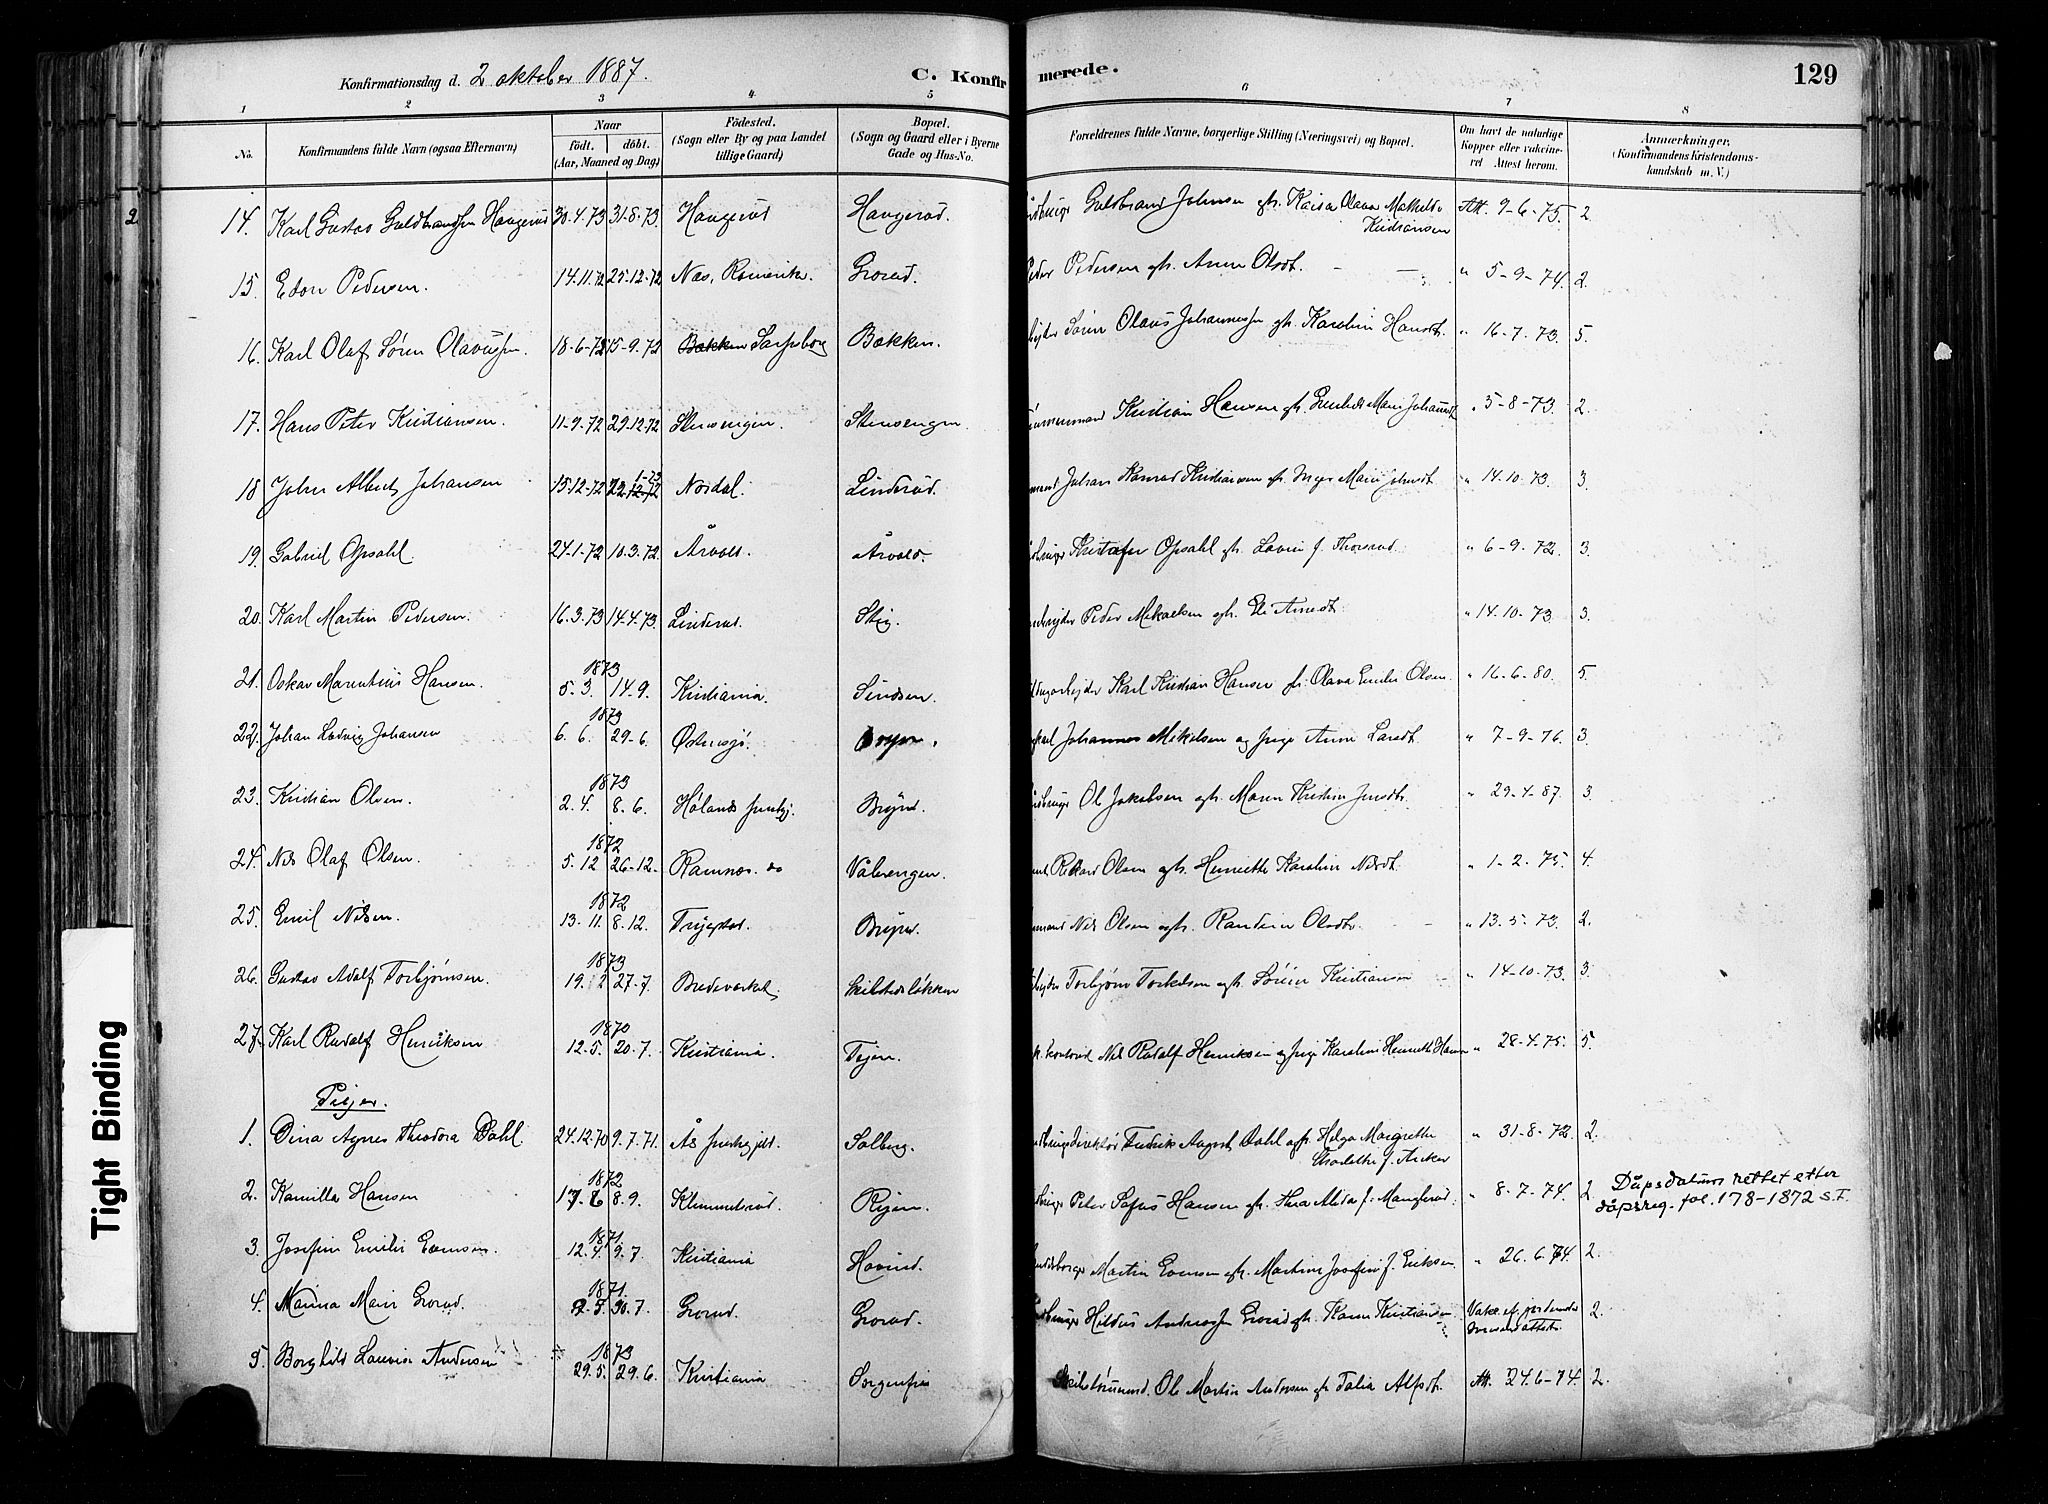 Konfirmationsdag d. 2 oktober 1887.
C. Konfirmerede.
129
1 2 3 4 5 6 7 8
No. Konfirmandens fulde Navn (ogsaa Efternavn) Naar födt. döbt. (Aar, Maaned og Dag) Födested. (Sogn eller By og paa Landet tillige Gaard) Bopæl. (Sogn og Gaard eller i Byerne Gade og Hus-No. Forældrenes fulde Navne, borgerlige Stilling (Næringsvei) og Bopæl. Om havt de naturlige Kopper eller vakcineret. Attest herom. Anmerkninger. (Konfirmandens Kristendomskundskab m. V.)
2
14. Karl Gustav Guldbrandsen Haugerud 30.4.73 31.8.73. Haugerud Haugerud. Guldbrand Johnsen gh. Kaisa Olava Mathilde Kristiansen Att. 9-6-75. 2.
15. Edor Pedersen. 14.11.72 25.12.72 Næs, Romerike. Grorud. Peder Pedersen gh. Anne Olsdt. " 5-9-74. 2.
16. Karl Olaf Sören Olavussen. 18-6-72 15-9.72 Bækken Sarpsborg Bækken. Sören Olaus Johannessen gh. Karoline Hansdt. " 16-7.73. 5.
17. Hans Peter Kristiansen. 11-9.72 29.12.72 Stensengen. Stensengen. Kristian Hansen gh. Marie Johannsdt " 5-8-73. 2.
18 Johan Albert Johansen 15.12.72 22.12.72 1-73 Nordal. Linderud. Johan Konrad Kristiansen gh. Inger Marie Johnsdt. " 14.10.73. 3.
19. Gabriel Opsahl. 24.1.72 10.3.72. Årvold. Årvold. Kristofer Opsahl gh. Lovise f. Thorsrud " 6-9.72. 3.
20. Karl Martin Pedersen. 16.3.73 14.4.73. Linderud. Stig. Peder Mikaelsen gh. Eli Arnedt. " 14.10.73 3.
21. Oskar Marentius Hansen. 1873 5.3. 14.9. Kristiania. Sindsen. Karl Kristian Hansen gh. Olava Emilie Olsen. " 16-6-80. 5.
22. Johan Ludvig Johansen 1873 6.6. 29-6. Østensjø. Bryn. Johannes Mikelsen og pige Anne Larsdt. " 7-9-76. 3.
23. Kristian Olsen. 1873 2.4. 8.6. Hølands prestgj. Bryn. Ol Jakobsen gh. Maren Kristine Jensdt. " 29-4-87. 3.
24. Nils Olaf Olsen. 1872 5.12 26-12. Ramnæs. do Vålerengen. Rikard Olsen gh. Henriette Karoline Nilsdt. " 1-2.75. 4.
25. Emil Nilsen. 1872 13.11. 8.12. Trygstad. Bryn. Nils Olsen gh. Randine Olsdt. " 13.5.73. 2.
26. Gustav Adolf Torbjörnsen. 1873 19.2 27.7. Bredeverket. Skilstedsløkken Torbjörn Torkelsen gh. Sörine Kristiansen " 14-10.73. 3.
27. Karl Rudolf Henriksen 1870 12.5. 20.7. Kristiania. Tøjen. Nils Rudolf Henriksen og pige Karoline Henriette Hansen " 28-4.75. 5.
Piger.
1. Dina Agnes Theodora Dahl. 24.12.70 9.7.71. Ås prestegjeld. Solberg. Fredrik August Dahl gh. Helga Margrethe Charlotte f. Anker " 31-8-72. 2.
2. Kamilla Hansen 1872 17-6 8.9. Klemmetsrud. Ryen. Peter Sofus Hansen gh. Thea Alida f. Manglerud. " 8-7.74. 2. Dåpsdatums rettet etter dåpsreg. fol. 178-1872 S.F.
3. Josefine Emilie Evensen. 1871 12.4. 9.7. Kristiania Hovind. Martin Evensen gh. Martine Josefine f. Eriksen. " 26.6.74. 2.
4. Marie Grorud. 1871. 2.5. 30.7. Grorud. Grorud. Andreassen Grorud gh. Karen Kristiansen. Vakc. ef. 2.
5. Borghild Lovise Andersen 1873 29.5. 29.6. Kristiania. Sorgenfri Ol Martin Andersen gh. Talia Alfsdt. Att. 24.6-74. 2.
Tight Binding